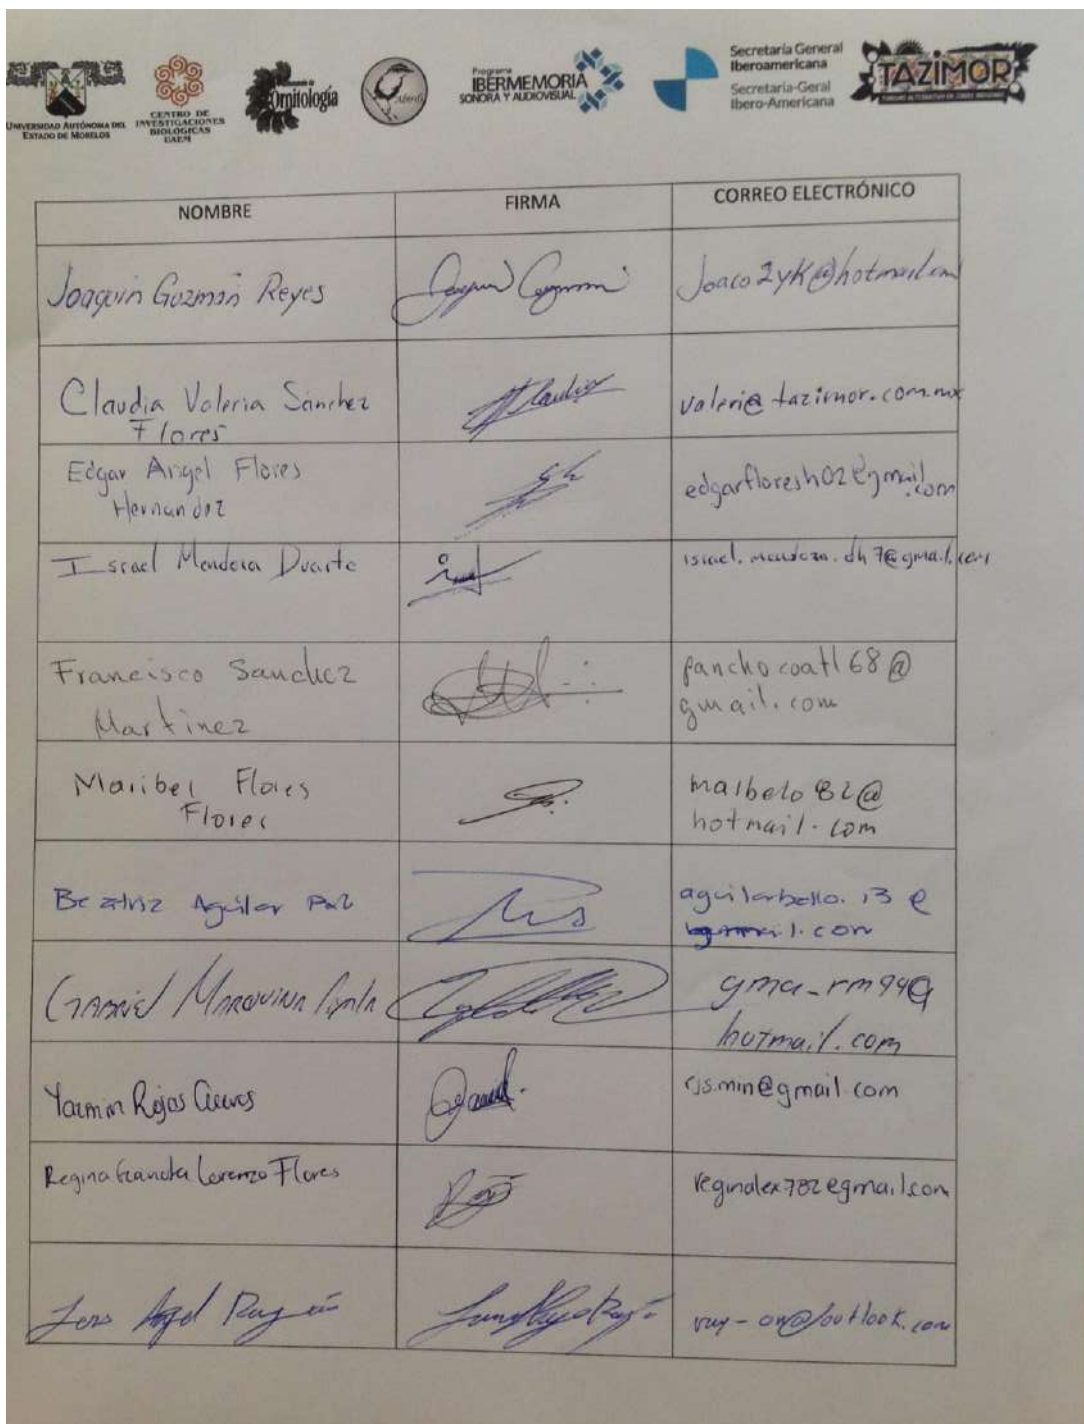 UNIVERSIDAD AUTÓNOMA DEL
ESTADO DE MORELOS
CENTRO DE
INVESTIGACIONES
BIOLOGICAS
UAEM
Ornitología
Programa
IBERMEMORIA
SONORA Y AUDIOVISUAL
Secretaría General
Iberoamericana
Secretaria-Geral
Ibero-Americana
TAZIMOR
NOMBRE FIRMA CORREO ELECTRÓNICO
Joaquin Guzmán Reyes Joaco2yk@hotmail.com
Claudia Valeria Sánchez valeria@tazimor.com.mx
Flores
Edgar Angel Flores edgarfloresh02@gmail
Hernandez .com
Israel Mendoza Duarte israel.mendoza.dh7@gmail.com
Francisco Sanchez panchocoatl68@
Martinez gmail.com
Maribel Flores malbelo82@
Flores hotmail.com
Beatriz Aguilar Paz aguilarbello.13@
gmail.com
GABRIEL MARQUINA gma_rm94@
hotmail.com
Yazmin Rojas Cuevas rjs.min@gmail.com
Regina Lorenzo Flores reginalex782@gmail.com
Angel outlook.com